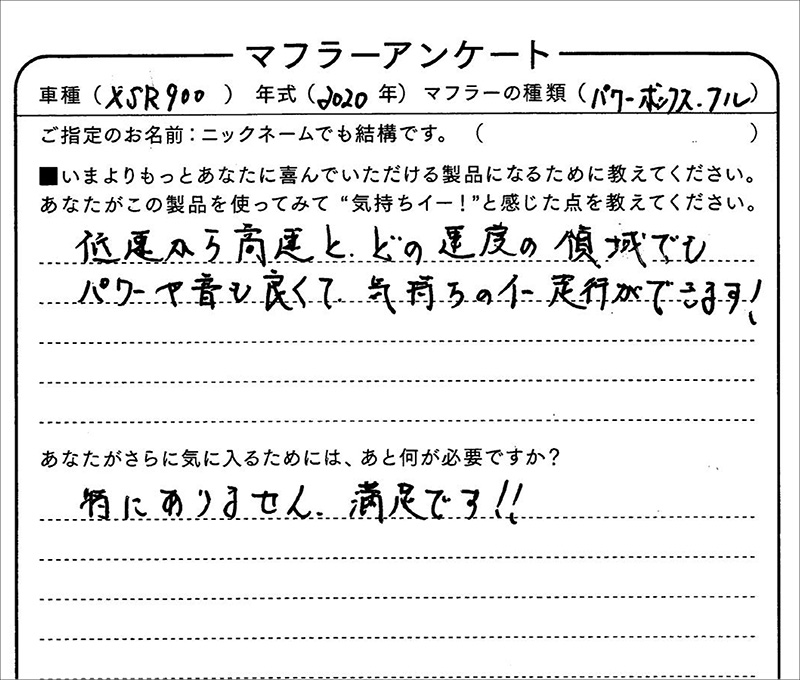 マフラーアンケート
車種（XSR900）年式（2020年）マフラーの種類（パワーボックス.フル）
ご指定のお名前：ニックネームでも結構です。（　）
■いまよりもっとあなたに喜んでいただける製品になるために教えてください。
あなたがこの製品を使ってみて“気持ちイー！”と感じた点を教えてください。
低速から高速と、どの速度の領域でも
パワーや音も良くて、気持ちのイー走行ができます!
あなたがさらに気に入るためには、あと何が必要ですか？
特にありません、満足です!!